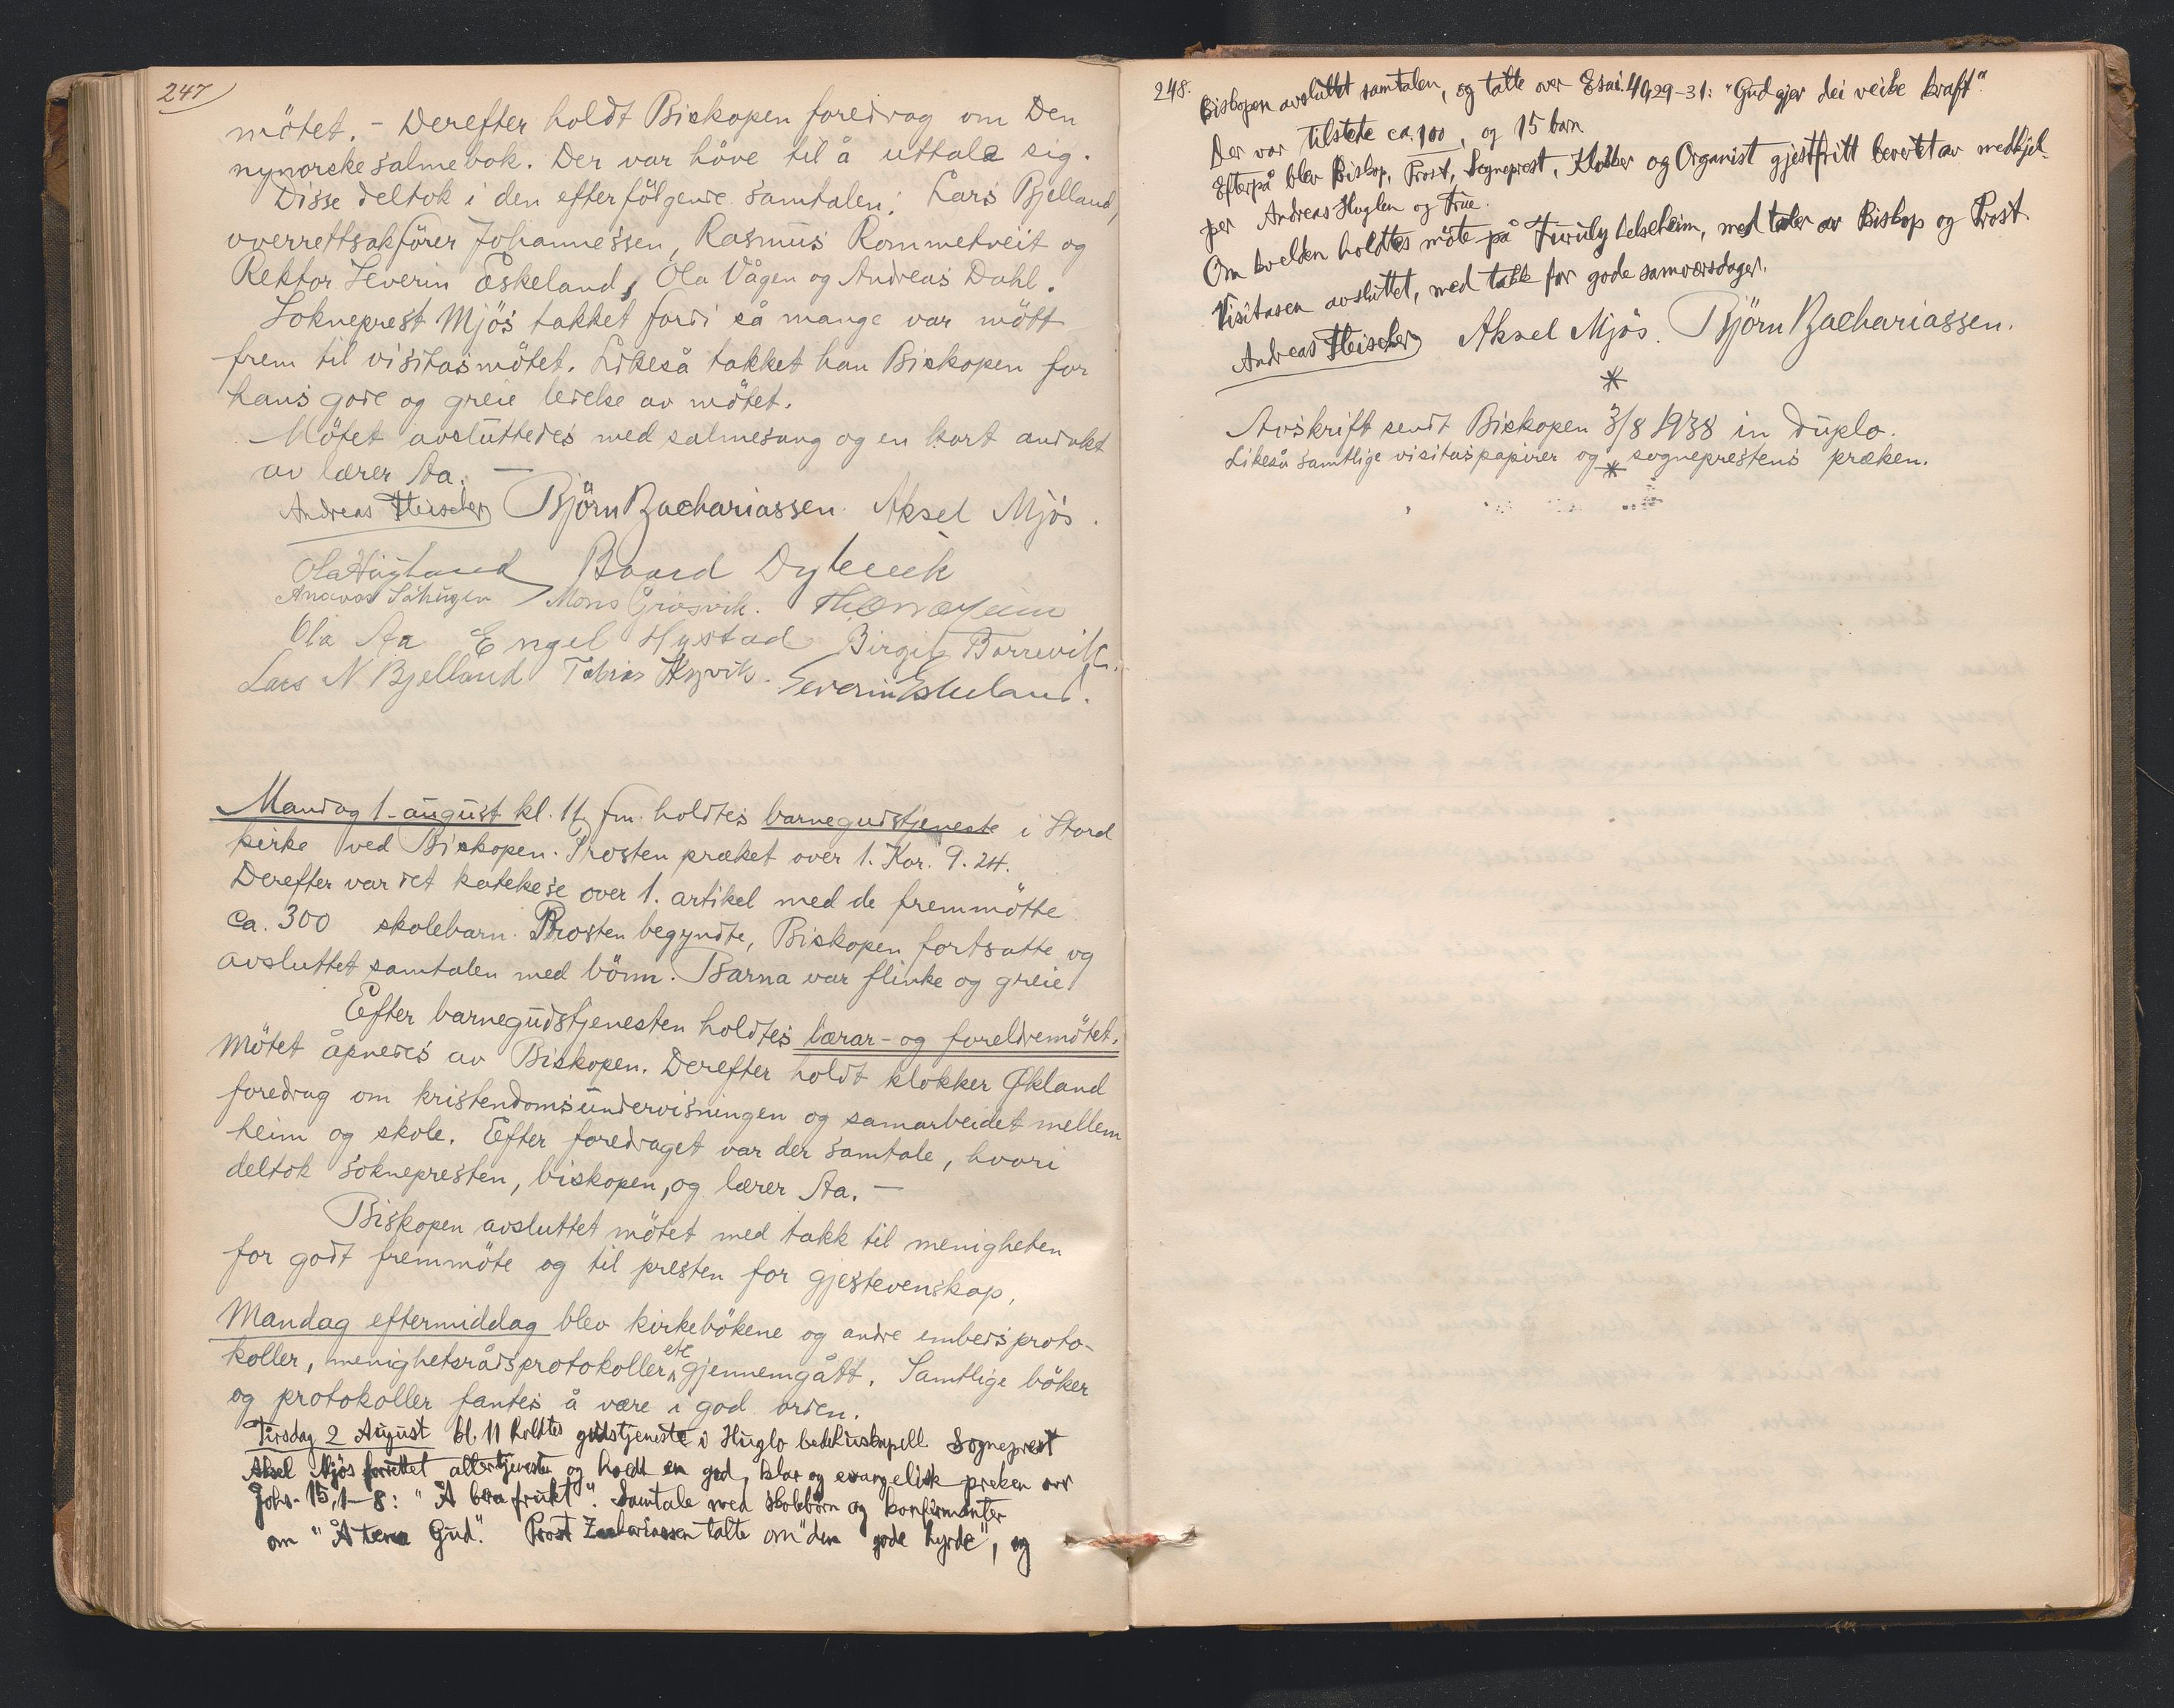 247
mötet. - Derefter holdt Biskopen foredrag om Den
nynorske salmebok. Der var höve til å uttale sig.
Disse deltok i den efterfölgende samtalen: Lars Bjelland,
overrettsakförer Johannessen, Rasmus Rommetveit og
Rektor Severin Eskeland, Ola Vågen og Andreas Dahl.
Sokneprest Mjös takket fordi så mange var mött
frem til visitasmötet. Likeså takket han Biskopen for
hans gode og greie ledelse av mötet.
Mötet avsluttedes med salmesang og en kort andakt
av lærer Aa. —
Andreas Fleischer Björn Zachariassen. Aksel Mjös.
Ola Höyland Baard Dyvik
Mons Grösvik.
Ola Aa Engel Hystad Birgit Borrevik.
Lars N Bjelland Tobias Hysvik. Severin Eskeland.
Mandag 1. august kl. 11 fm. holdtes barnegudstjeneste i Stord
kirke ved Biskopen. Prosten præket over 1. Kor. 9. 24.
Derefter var det katekese over 1. artikel med de fremmötte
ca. 300 skolebarn. Prosten begyndte, Biskopen fortsatte og
avsluttet samtalen med bönn. Barna var flinke og greie.
Efter barnegudstjenesten holdtes lærar- og foreldremötet.
Mötet åpnedes av Biskopen. Derefter holdt klokker Økland
foredrag om kristendomsundervisningen og samarbeidet mellem
heim og skole. Efter foredraget var der samtale, hvori
deltok soknepresten, biskopen, og lærer Aa. —
Biskopen avsluttet mötet med takk til menigheten
for godt fremmöte og til presten for gjestevenskap.
Mandag eftermiddag blev kirkebökene og andre embedsproto-
koller, menighetsrådsprotokoller etc gjennemgått. Samtlige böker
og protokoller fantes å være i god orden.
Tirsdag 2 August kl. 11 holdtes gudstjeneste i Huglo bedehuskapell. Sogneprest
Aksel Mjös forrettet altertjenesten og holdt en god, klar og evangelisk preken over
Johs. 15,1-8: "Å bera frukt". Samtale med skolebörn og konfirmanter
om "Å tena Gud". Prost Zachariassen talte om "den gode hyrde", og
248.
Biskopen avsluttet samtalen, og talte over Esai. 40,29-31: "Gud gjev dei veike kraft".
Der var tilstede ca. 100, og 15 barn.
Efterpå blev Biskop, Prost, Sogneprest, Klokker og Organist gjestfritt bevertet av medhjel-
per Andreas Huglen og Frue.
Om kvelden holdtes möte på Furuly helseheim, med taler av Biskop og Prost.
Visitasen avsluttet, med takk for gode samværsdager.
Andreas Fleischer Aksel Mjös. Björn Zachariassen.
*
Avskrift sendt Biskopen 3/8 1938 in duplo.
Likeså samtlige visitaspapirer og sogneprestens præken.
*